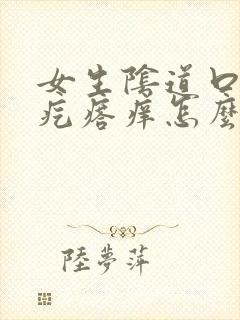 女生陰道口
疙瘩痒怎麼
陸夢萍